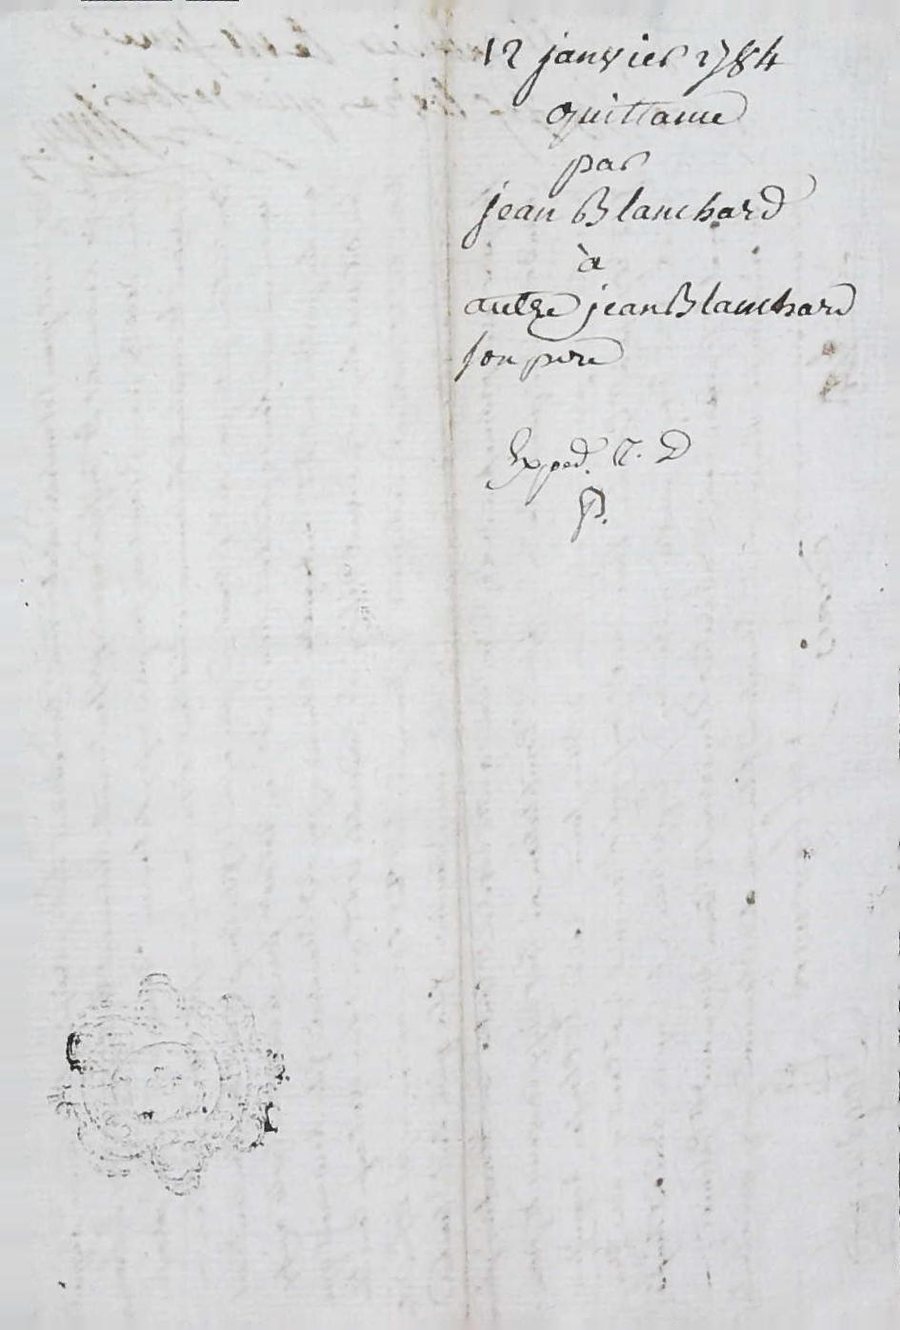 12 janvier 1784
quittance
par
jean Blanchard
à
autre jean Blanchard
son pere
Exped.